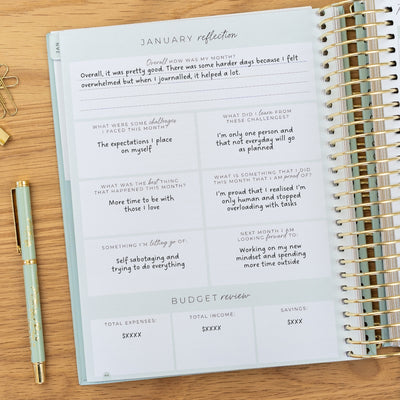 JAN
JANUARY reflection
Overall HOW WAS MY MONTH?
Overall, it was pretty good. There was some harder days because I felt
overwhelmed but when I journalled, it helped a lot.
WHAT WERE SOME challenges
I FACED THIS MONTH?
The expectations I place
on myself
WHAT DID I learn FROM
THESE CHALLENGES?
I'm only one person and
that not everyday will go
as planned
WHAT WAS THE best THING
THAT HAPPENED THIS MONTH?
More time to be with
those I love
WHAT IS SOMETHING THAT I DID
THIS MONTH THAT I AM proud OF?
I'm proud that I realised I'm
only human and stopped
overloading with tasks
SOMETHING I'M letting go OF:
Self sabotaging and
trying to do everything
NEXT MONTH I AM
LOOKING forward TO:
Working on my new
mindset and spending
more time outside
BUDGET review
TOTAL EXPENSES:
$XXXX
TOTAL INCOME:
$XXXX
SAVINGS:
$XXX